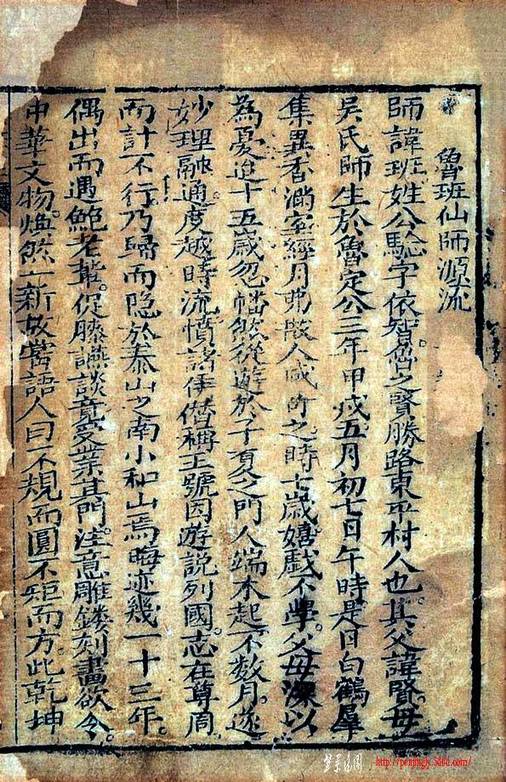 魯班仙師源流
師諱班姓公字依智魯之賢勝路東平村人也其父諱賢母
吳氏師生於魯定公三年甲戌五月初七日午時是日白鶴羣
集異香滿室經月弗散人咸奇之時七歲嬉戲不學父母深以
為憂迨十五歲忽幡然從遊於子夏之門人端木起不數月遂
妙理融通度越時流憤諸侯僭稱王號因遊說列國志在尊周
而計不行乃歸而隱於泰山之南小和山焉晦迹幾一十三年。
偶出而遇鮑老輩。促膝讌談竟受業其門注意雕鏤刻畫欲令
中華文物煥然一新故嘗語人曰不規而圓不矩而方此乾坤